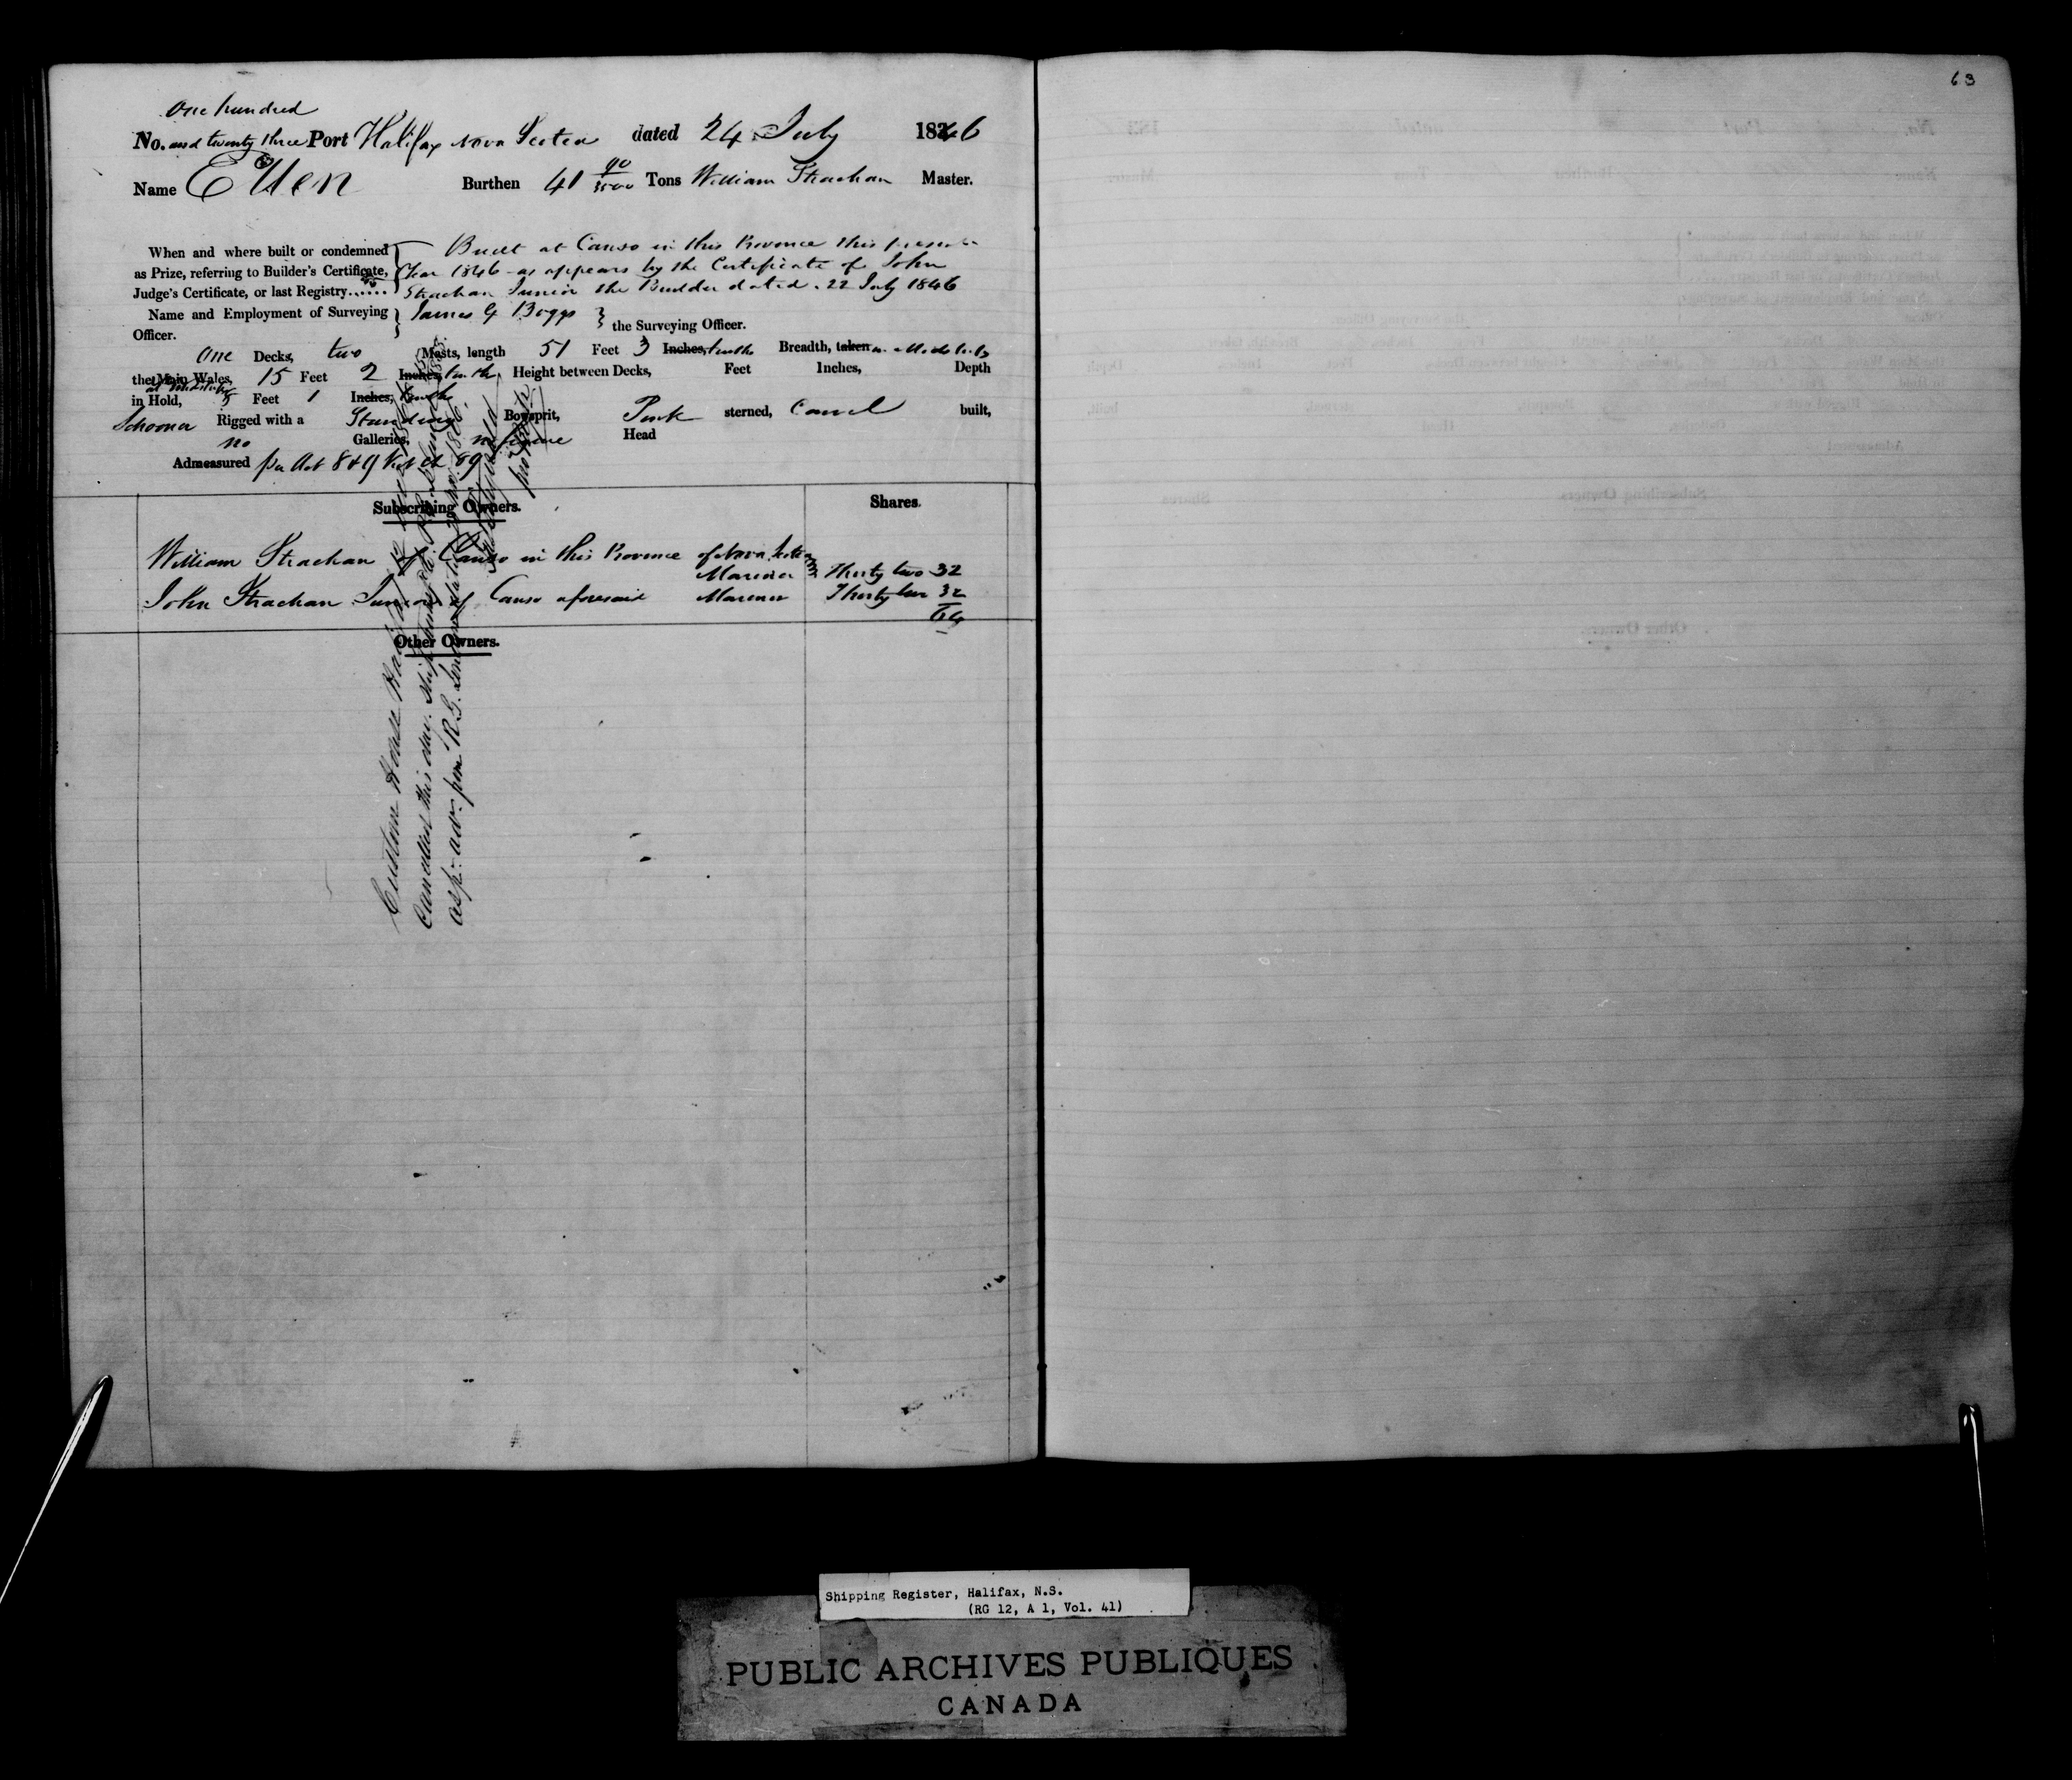 63
One hundred
No. and twenty three Port Halifax Nova Scotia dated 24 July 1846
Name Ellen Burthen 41 90/3500 Tons William Strachan Master.
When and where built or condemned as Prize, referring to Builder's Certificate, Judge's Certificate, or last Registry......
Built at Canso in this Province this present
Year 1846 as appears by the Certificate of John
Strachan Junior the Builder dated 22 July 1846
Name and Employment of Surveying Officer. James G Boggs the Surveying Officer.
One Decks, two Masts, length 51 Feet 3 Inches, tenths Breadth, taken in Midships
the Main Wales, 15 Feet 2 Inches, tenths, Height between Decks, Feet Inches, Depth
at Midships
in Hold, 5 Feet 1 Inches, tenths
Schooner Rigged with a Standing Bowsprit, Pink sterned, Carvel built,
no Galleries, no figure Head
Admeasured per Act 8 & 9 Vict Ch 89
Subscribing Owners. Shares.
William Strachan of Canso in this Province of Nova Scotia
Mariner Thirty two 32
John Strachan Junior of Canso aforesaid Mariner Thirty two 32
64
Other Owners.
Custom House Halifax
Cancelled this day.
as pr. adv. from R.G.
Shipping Register, Halifax, N.S.
(RG 12, A 1, Vol. 41)
PUBLIC ARCHIVES PUBLIQUES
CANADA